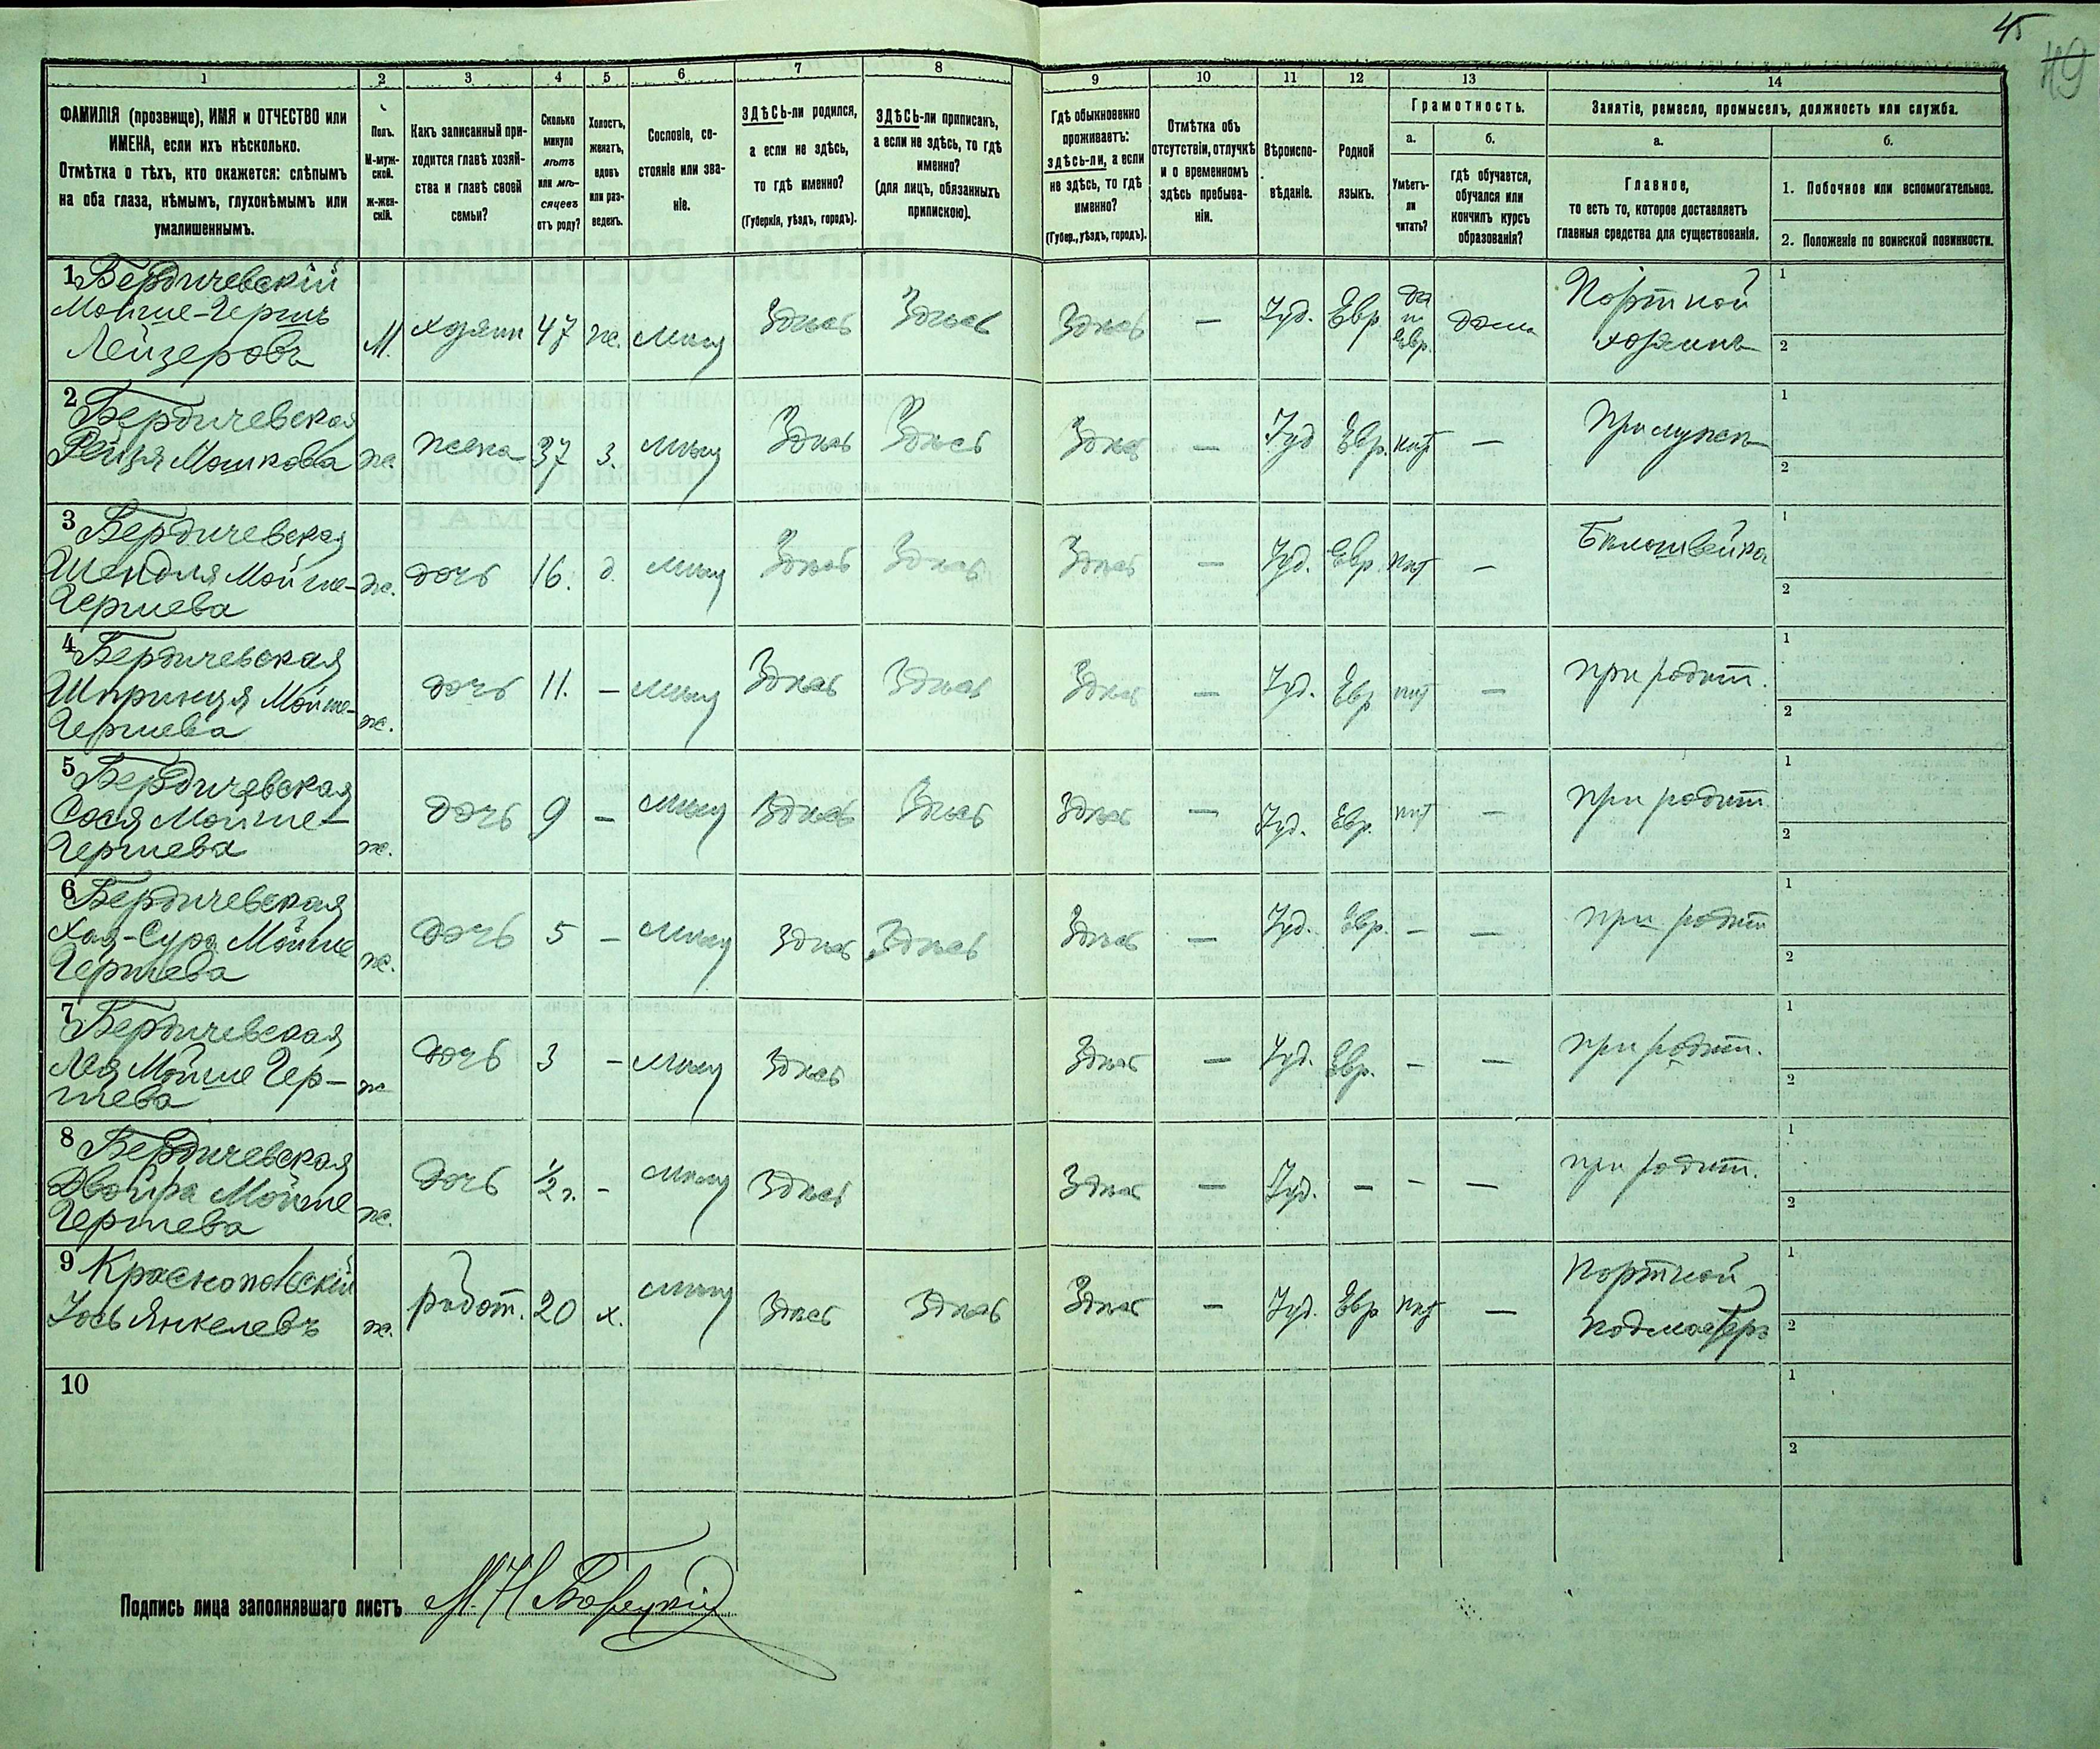 45
49
1 2 3 4 5 6 7 8 9 10 11 12 13 14
ФАМИЛІЯ (прозвище), ИМЯ и ОТЧЕСТВО или
ИМЕНА, если ихъ нѣсколько.
Отмѣтка о тѣхъ, кто окажется: слѣпымъ
на оба глаза, нѣмымъ, глухонѣмымъ или
умалишеннымъ.
Полъ.
М-муж-
ской.
Ж-жен-
скій.
Какъ записанный при-
ходится главѣ хозяй-
ства и главѣ своей
семьи?
Сколько
минуло
лѣтъ
или мѣ-
сяцевъ
отъ роду?
Холостъ,
женатъ,
вдовъ
или раз-
веденъ.
Сословіе, со-
стояніе или зва-
ніе.
ЗДѢСЬ-ли родился,
а если не здѣсь,
то гдѣ именно?
(Губернія, уѣздъ, городъ).
ЗДѢСЬ-ли приписанъ,
а если не здѣсь, то гдѣ
именно?
(для лицъ, обязанныхъ
припискою).
Гдѣ обыкновенно
проживаетъ:
здѣсь-ли, а если
не здѣсь, то гдѣ
именно?
(Губер., уѣздъ, городъ).
Отмѣтка объ
отсутствіи, отлучкѣ
и о временномъ
здѣсь пребыва-
ніи.
Вѣроиспо-
вѣданіе.
Родной
языкъ.
Грамотность.
а.
Умѣетъ-
ли
читать?
б.
гдѣ обучается,
обучался или
кончилъ курсъ
образованія?
Занятіе, ремесло, промыселъ, должность или служба.
а.
Главное,
то есть то, которое доставляетъ
главныя средства для существованія.
б.
1. Побочное или вспомогательное.
2. Положеніе по воинской повинности.
1 Бердичевскій
Мойше-Гершъ
Лейзеровъ
М. хозяин 47 ж. мѣщ Здѣсь Здѣсь Здѣсь — Іуд. Евр
да
п
Евр.
дома
Портной
хозяинъ
1
2
2 Бердичевская
Рейзя Мошкова
ж. жена 37 з. мѣщ Здѣсь Здѣсь Здѣсь — Іуд Евр. нѣт —
При мужѣ
1
2
3 Бердичевская
Шендля Мойше-
Гершева
ж. дочь 16. д. мѣщ Здѣсь Здѣсь Здѣсь — Іуд. Евр. нѣт —
Бѣлошвейка
1
2
4 Бердичевская
Шпринця Мойше-
Гершева
ж. дочь 11. — мѣщ Здѣсь Здѣсь Здѣсь — Іуд. Евр нѣт —
при родит.
1
2
5 Бердичевская
Сося Мойше-
Гершева
ж. дочь 9 — мѣщ Здѣсь Здѣсь Здѣсь — Іуд. Евр. нѣт —
при родит
1
2
6 Бердичевская
Хая-Сура Мойше
Гершева
ж. дочь 5 — мѣщ Здѣсь Здѣсь Здѣсь — Іуд. Евр. — —
при родит
1
2
7 Бердичевская
Лея Мойше Гер-
шева
ж дочь 3 — мѣщ Здѣсь Здѣсь — Іуд. Евр. — —
при родит.
1
2
8 Бердичевская
Двойра Мойше
Гершева
ж. дочь 1/2 г. — мѣщ Здѣсь Здѣсь — Іуд. — — —
при родит.
1
2
9 Краснопольскій
Іось Янкелевъ
ж. работ. 20 х. мѣщ Здѣсь Здѣсь Здѣсь — Іуд. Евр нѣт —
Портной
подмастерз
1
2
10
1
2
Подпись лица заполнявшаго листъ